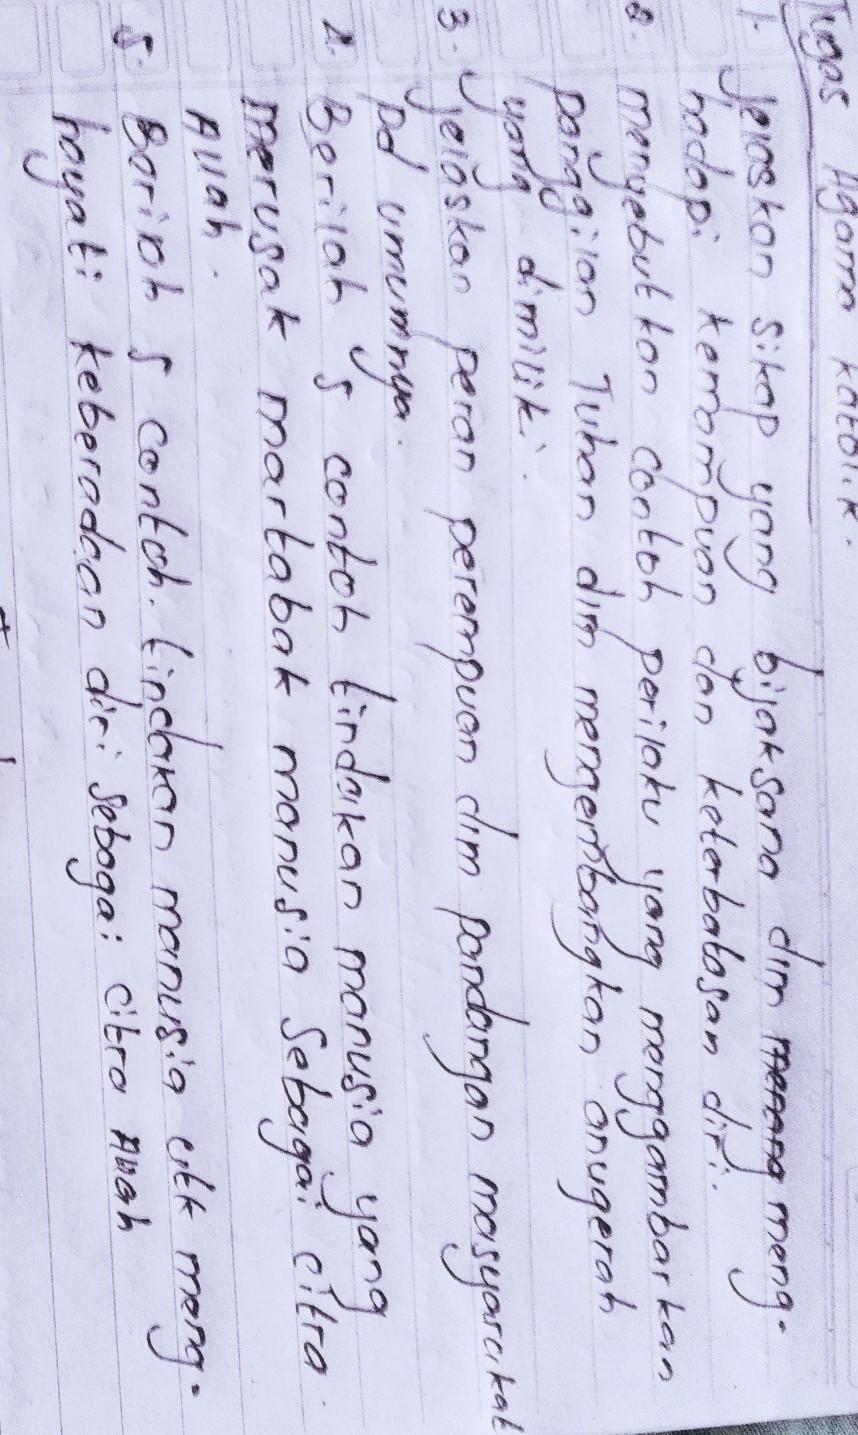 Tugas Agama Katolik.
1. Jelaskan sikap yang bijaksana dlm meng-
hadapi kemampuan dan keterbatasan diri.
2. menyebutkan contoh perilaku yang menggambarkan
panggilan Tuhan dlm mengembangkan anugerah
yang dimiliki.
3. Jelaskan peran perempuan dlm pandangan masyarakat
pd umumnya.
4. Berilah 5 contoh tindakan manusia yang
merusak martabak manusia sebagai citra
Allah.
5. Berilah 5 contoh tindakan manusia utk meng-
hayati keberadaan diri sebagai citra Allah